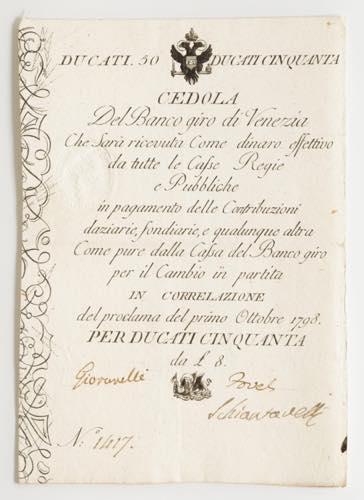 DUCATI. 50 DUCATI CINQUANTA
CEDOLA
Del Banco giro di Venezia
Che Sarà ricevuta Come dinaro effettivo
da tutte le Casse Regie
e Pubbliche
in pagamento delle Contribuzioni
daziarie, fondiarie, e qualunque altra
Come pure dalla Cassa del Banco giro
per il Cambio in partita
IN CORRELAZIONE
del proclama del primo Ottobre 1798.
PER DUCATI CINQUANTA
da £ 8.
Giovanelli
N.º 1417.